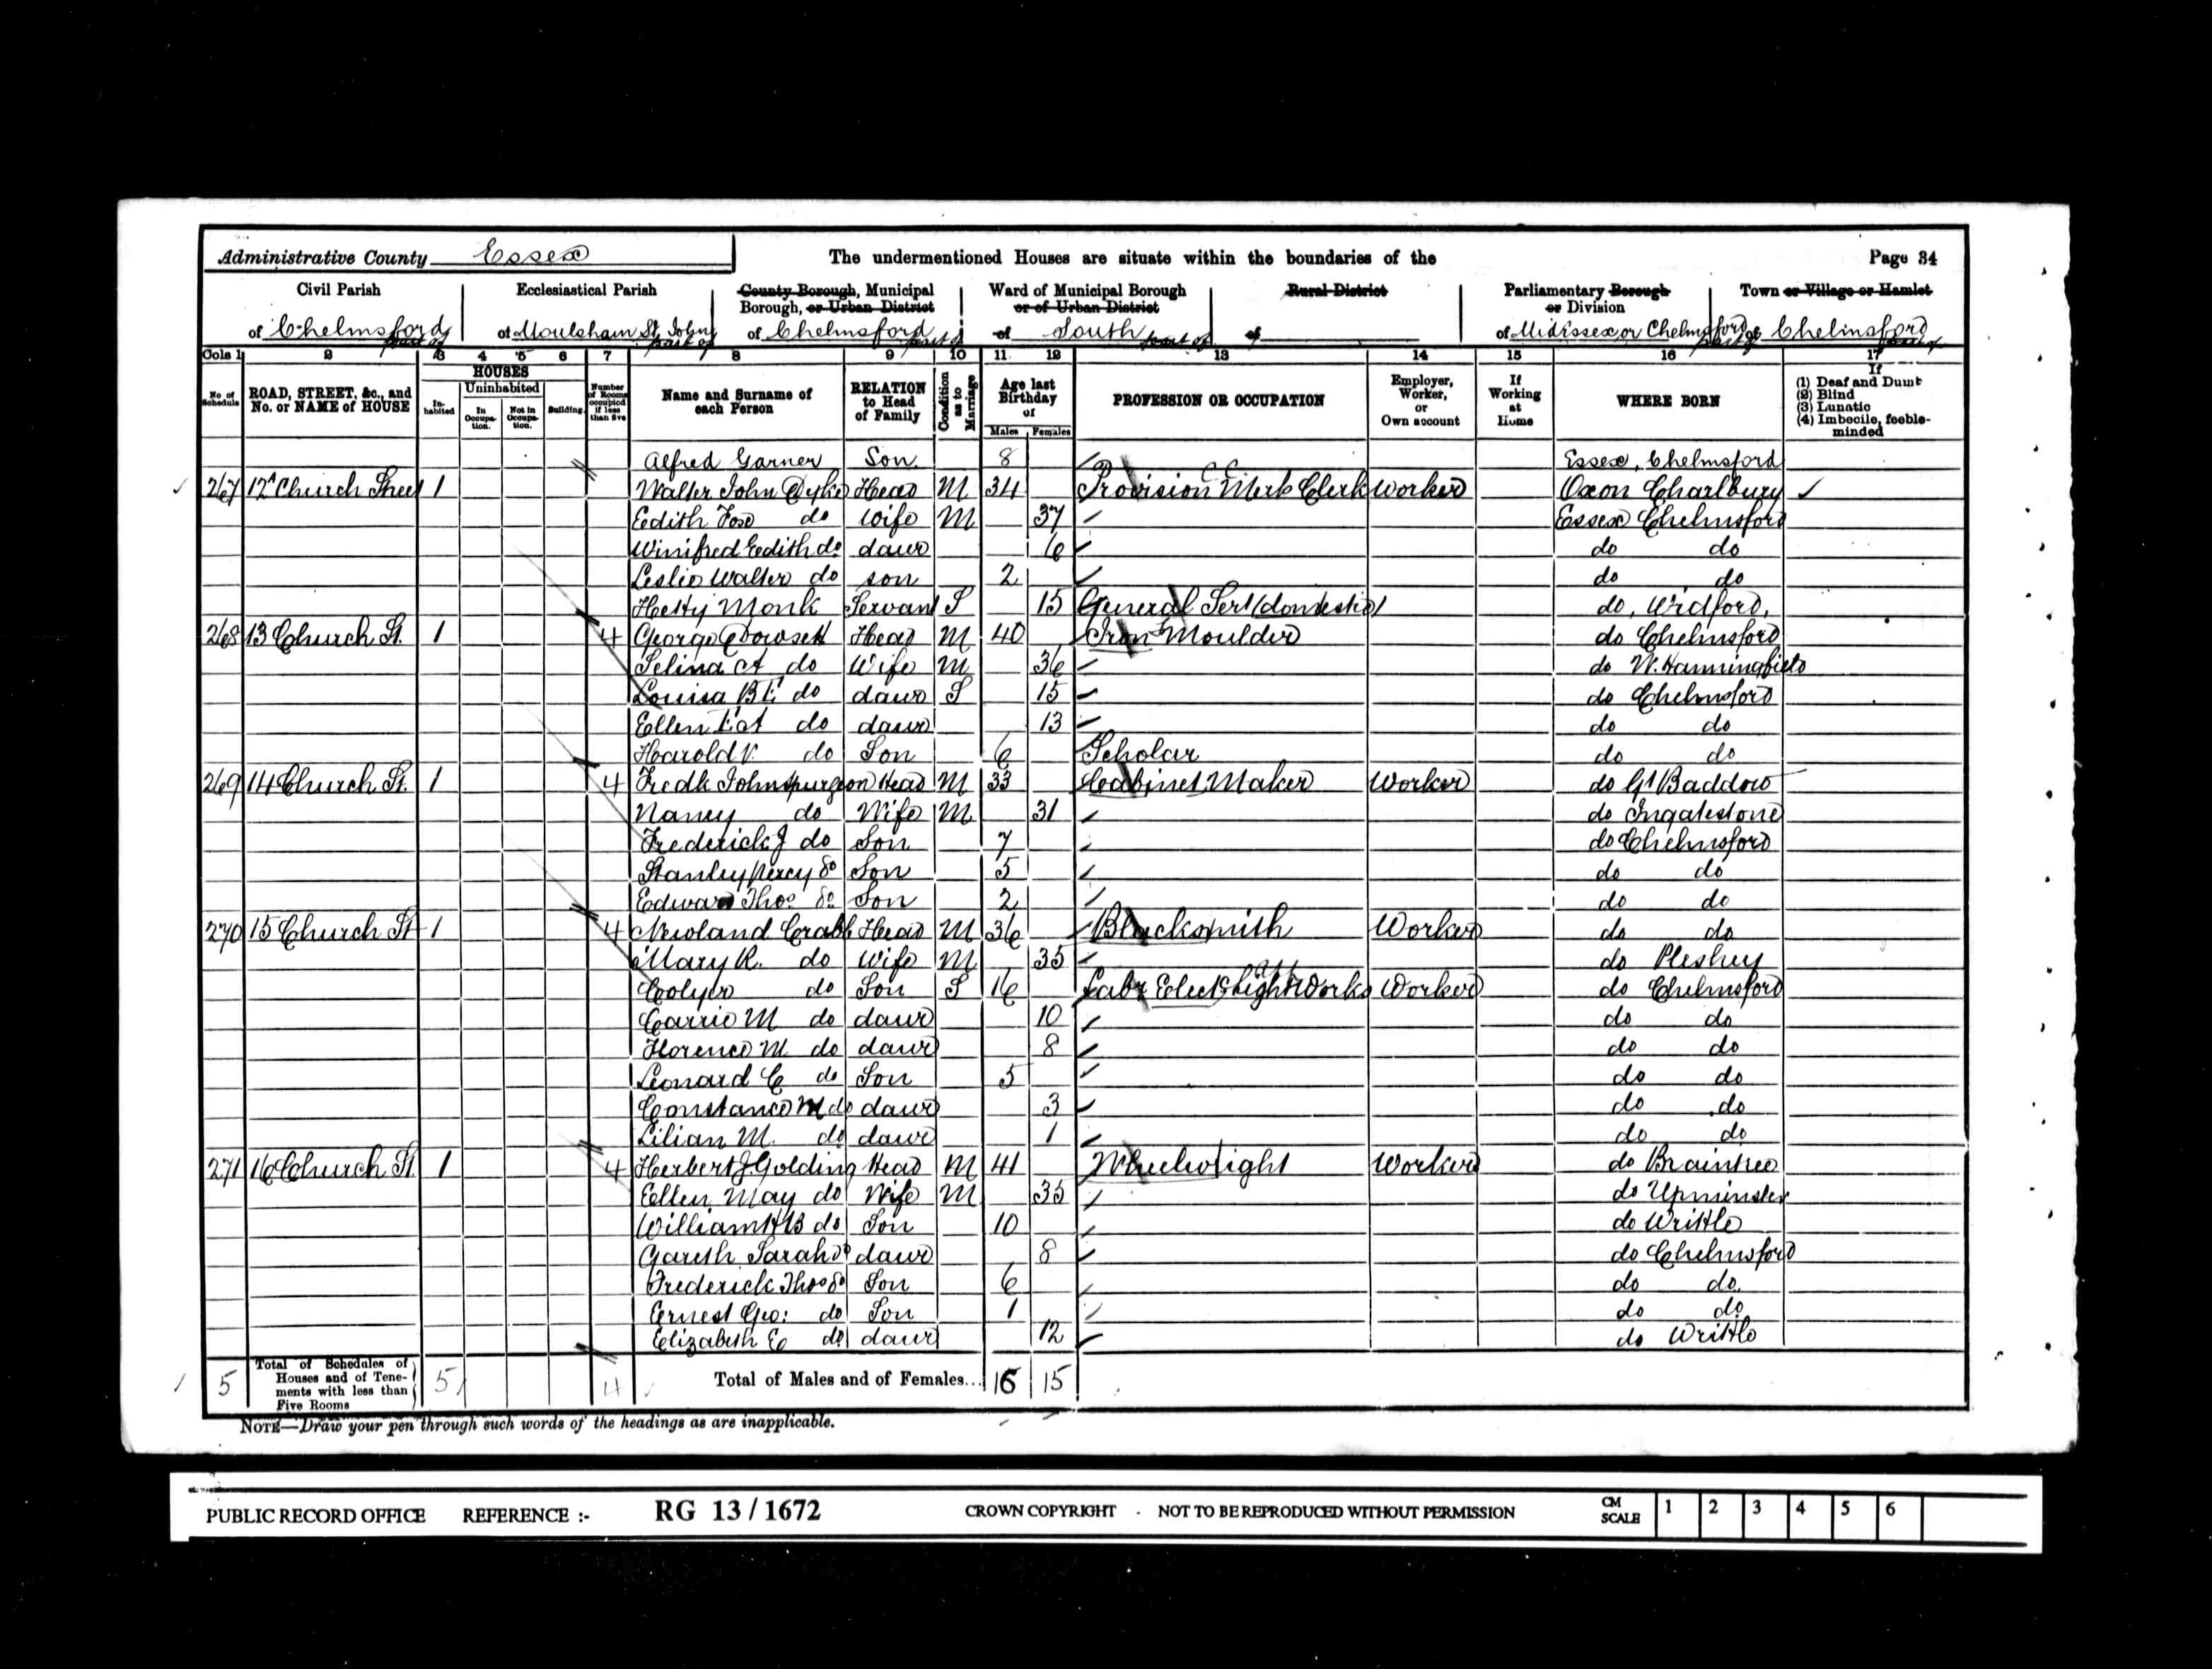 Administrative County Essex The undermentioned Houses are situate within the boundaries of the Page 34
Civil Parish Ecclesiastical Parish County Borough, Municipal Borough, or Urban District Ward of Municipal Borough or of Urban District Rural District Parliamentary Borough or Division Town or Village or Hamlet
of Chelmsford part of of Moulsham St. Johns part of of Chelmsford part of of South part of of of Mid Essex or Chelmsford part of of Chelmsford part of
Cols 1 2 3 4 5 6 7 8 9 10 11 12 13 14 15 16 17
No of Schedule ROAD, STREET, &c., and No. or NAME of HOUSE HOUSES Inhabited Uninhabited In Occupation. Not in Occupation. Building. Number of Rooms occupied if less than five Name and Surname of each Person RELATION to Head of Family Condition as to Marriage Age last Birthday of Males Females PROFESSION OR OCCUPATION Employer, Worker, or Own account If Working at Home WHERE BORN If (1) Deaf and Dumb (2) Blind (3) Lunatic (4) Imbecile, feeble-minded
Alfred Garner Son 8 Essex, Chelmsford
267 12 Church Street 1 Walter John Dyke Head M 34 Provision Merch Clerk Worker Oxon Charlbury
Edith do Wife M 37 Essex Chelmsford
Winifred Edith do daur 6 do do
Leslie Walter do son 2 do do
Hetty Monk Servant S 15 General Servt (domestic) do, Widford,
268 13 Church St. 1 4 George Dowsett Head M 40 Iron Moulder do Chelmsford
Selina A do Wife M 36 do W. Hanningfield
Louisa B E do daur S 15 do Chelmsford
Ellen E A do daur 13 do do
Harold V. do Son 6 Scholar do do
269 14 Church St. 1 4 Fredk John Spurgeon Head M 33 Cabinet Maker Worker do Gt Baddow
Nancy do Wife M 31 do Ingatestone
Frederick J do Son 7 do Chelmsford
Stanley Percy do Son 5 do do
Edward Thos do Son 2 do do
270 15 Church St 1 4 Newland Crabb Head M 36 Blacksmith Worker do do
Mary R. do Wife M 35 do Pleshey
Colyer do Son S 16 Labr Elect Light Works Worker do Chelmsford
Carrie M do daur 10 do do
Florence M do daur 8 do do
Leonard C do Son 5 do do
Constance M do daur 3 do do
Lilian M. do daur 1 do do
271 16 Church St. 1 4 Herbert J. Golding Head M 41 Wheelwright Worker do Braintree
Ellen May do Wife M 35 do Upminster
William H B do Son 10 do Writtle
Gareth Sarah do daur 8 do Chelmsford
Frederick Thos do Son 6 do do
Ernest Geo: do Son 1 do do
Elizabeth E do daur 12 do Writtle
5 Total of Schedules of Houses and of Tenements with less than Five Rooms 5 4 Total of Males and of Females... 16 15
NOTE—Draw your pen through such words of the headings as are inapplicable.
PUBLIC RECORD OFFICE REFERENCE :- RG 13 / 1672 CROWN COPYRIGHT - NOT TO BE REPRODUCED WITHOUT PERMISSION CM SCALE 1 2 3 4 5 6